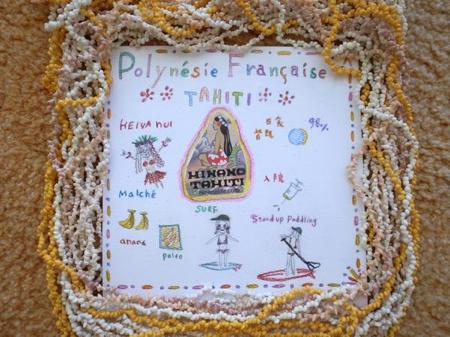 Polynésie Française
TAHITI
HEIVA nui
日食
98%
HINANO
TAHITI
入院
Malché
SURF
Standup Paddling
anana
paleo